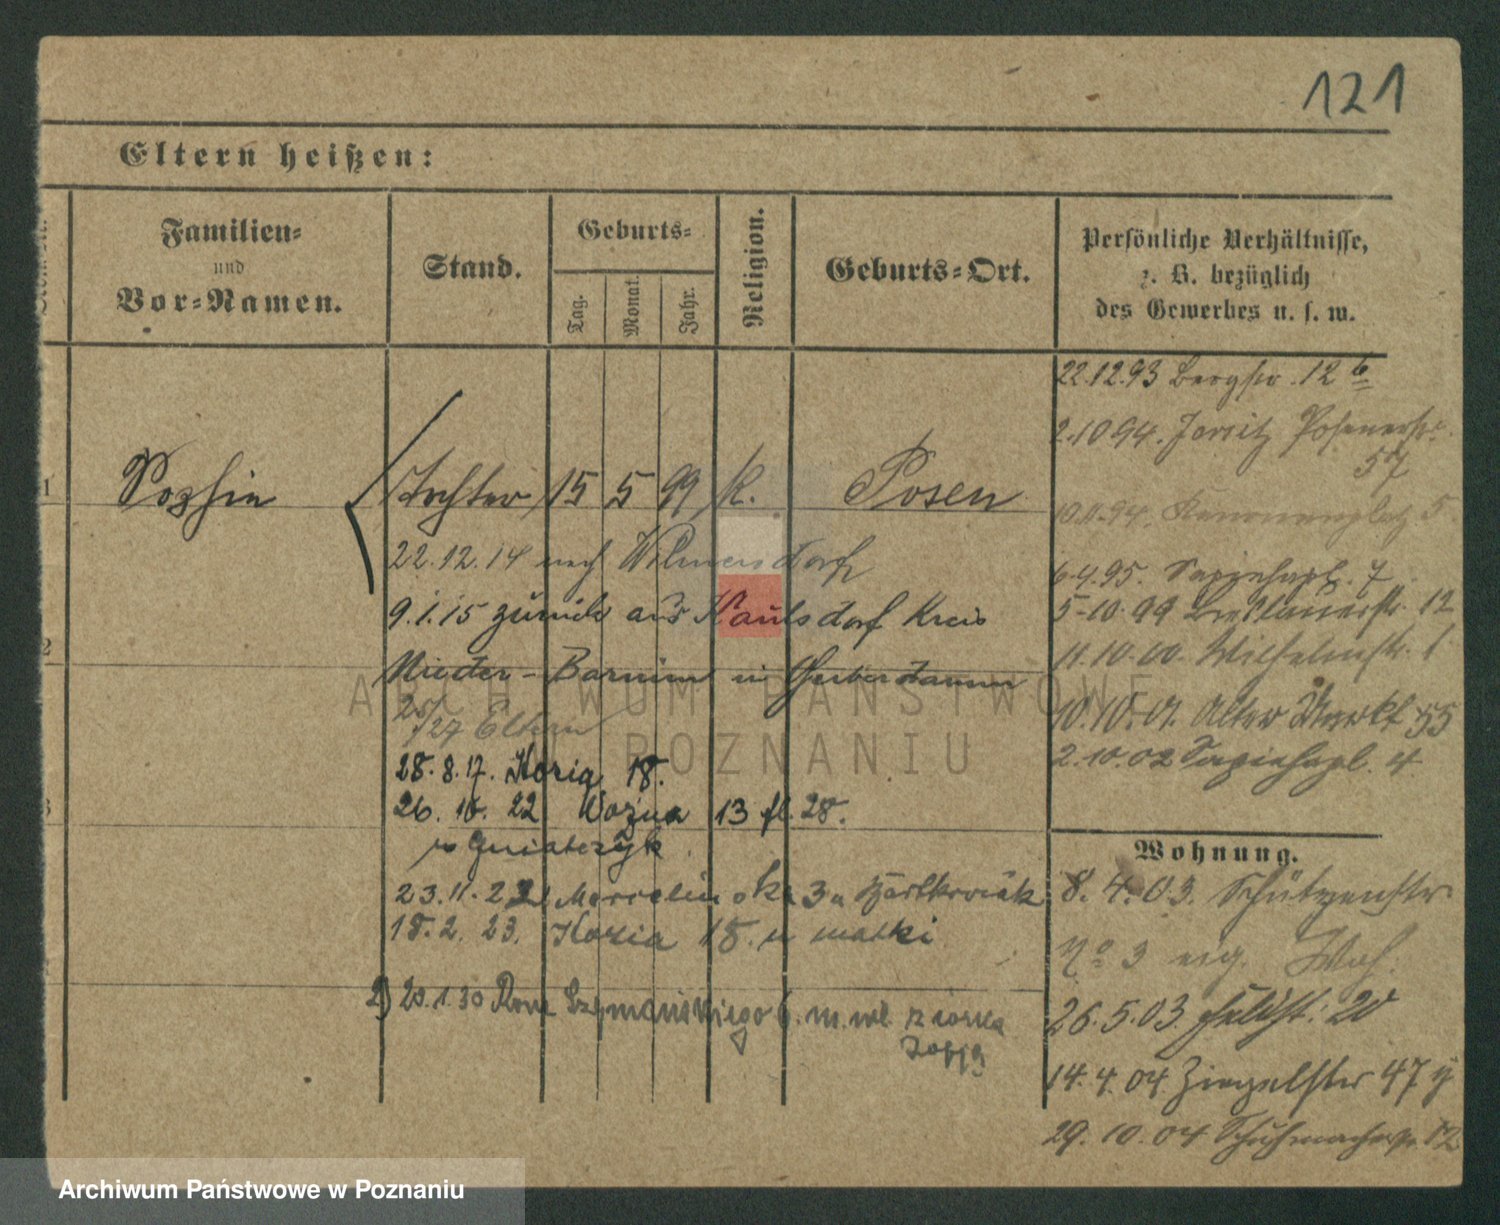 121
Eltern heißen:
Familien=
und
Vor=Namen.
Stand.
Geburts=
Tag.
Monat.
Jahr.
Religion.
Geburts=Ort.
Persönliche Verhältnisse,
z. B. bezüglich
des Gewerbes u. s. w.
22.12.93 Bergstr. 12 b
2.10.94. Jersitz Posenerstr.
57
1 Sophie Tochter 15 5 99 K. Posen
10.11.94. Kanonenplatz 5
22.12.14 nach Wilmersdorf
6.4.95. Sapiehapl. 7
9.1.15 zurück aus Kaulsdorf Kreis
5.10.99 Breslauerstr. 12
11.10.00. Wilhelmstr. 1
2 Nieder-Barnim in
27 Eltern
10.10.01. Alter Markt 55
28.8.17. Kozia 18.
2.10.02 Sapiehapl. 4.
26.10.22 Woźna 13 fl. 28.
3
u Gniatczyk
Wohnung.
23.11.22 3 u
8.4.03. Schützenstr.
18.2.23. Kozia 18. u matki
No 3 eig. Woh.
2) 20.1.30 Szymańskiego 6. m. wł. ziorka
26.5.03. 20
Zofja
14.4.04 Ziegelstr 47
29.10.04 Schuhmacherstr. 12
ARCHIWUM PAŃSTWOWE
W POZNANIU
Archiwum Państwowe w Poznaniu